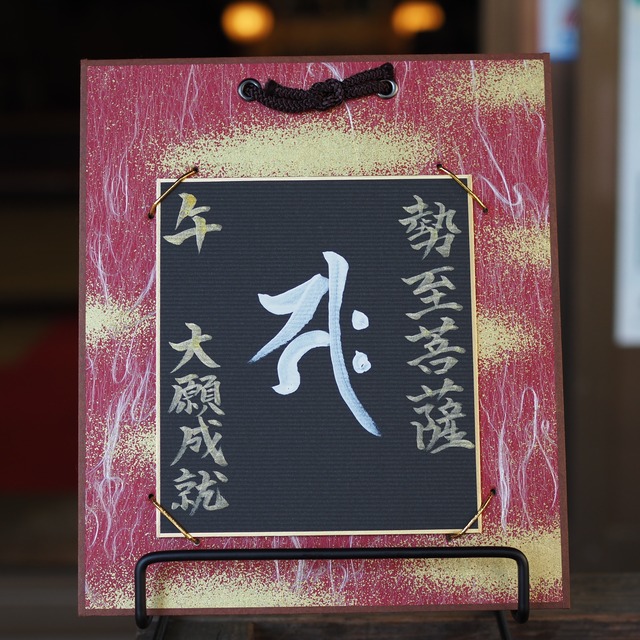 勢至菩薩
सः
午
大願成就